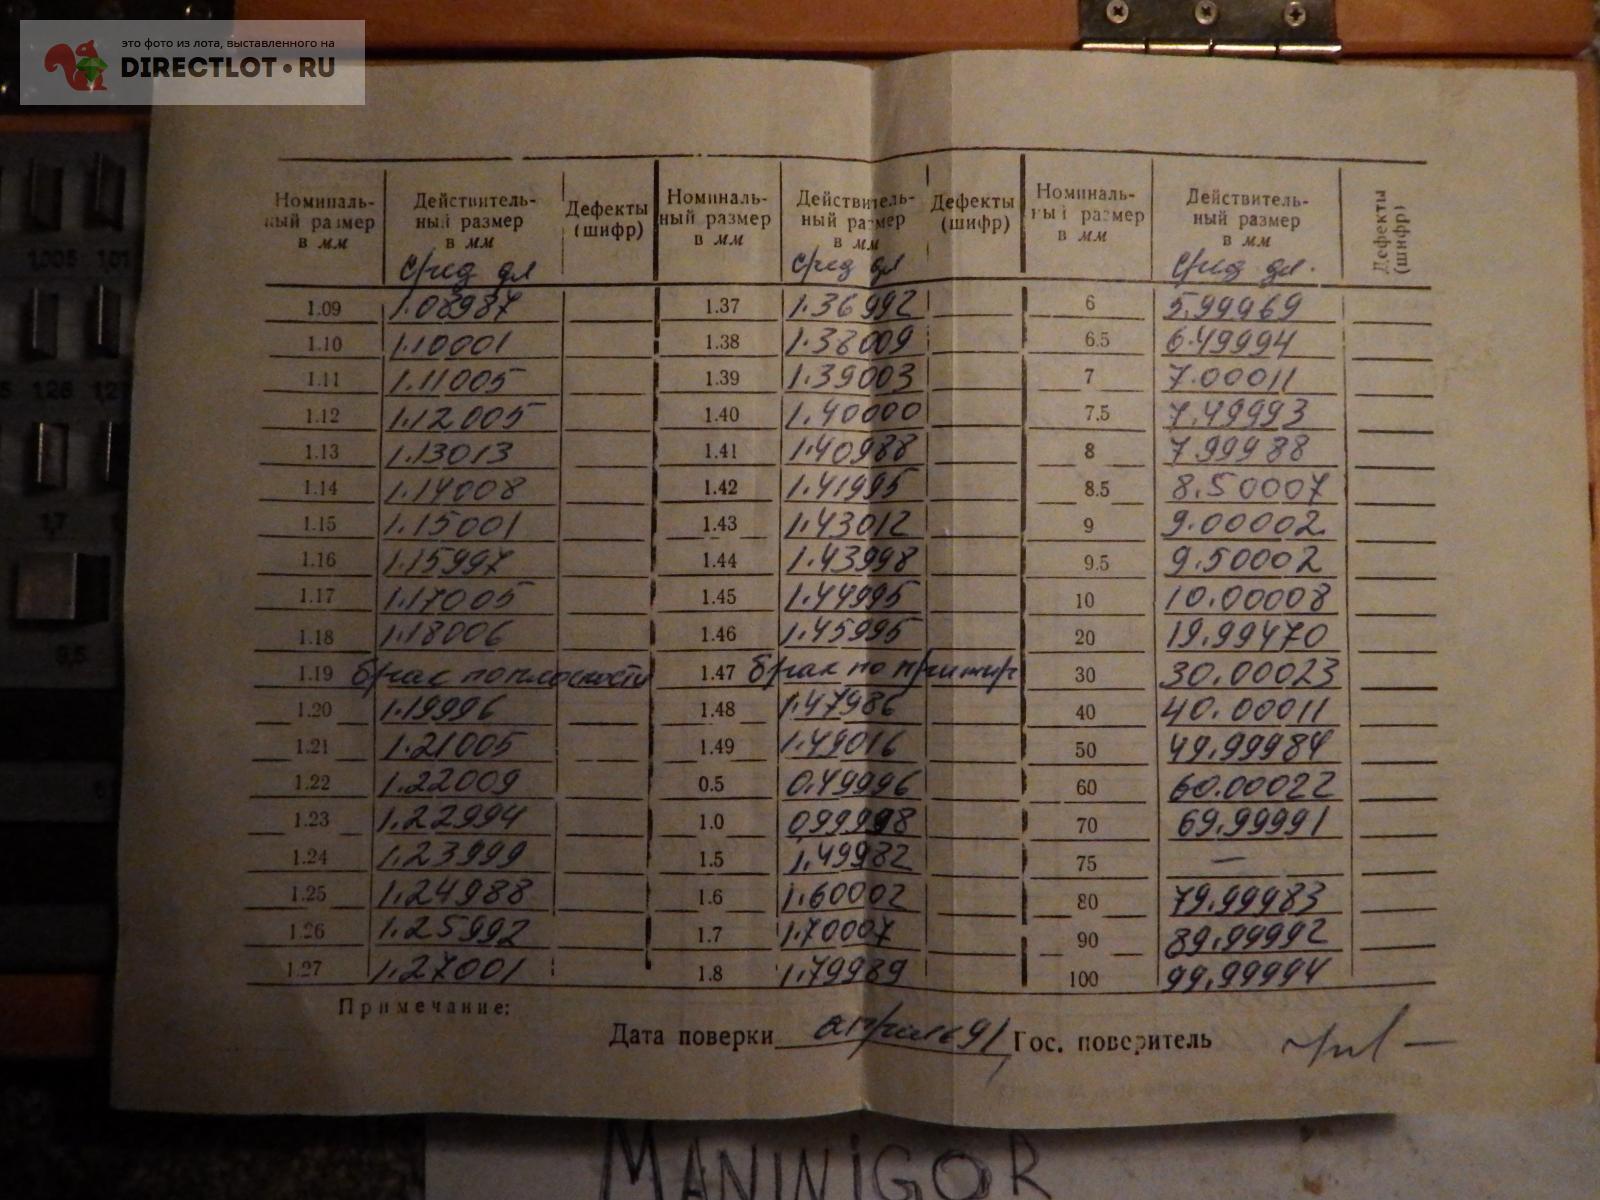 это фото из лота, выставленного на
DIRECTLOT.RU
Номиналь- Действитель- Дефекты Номиналь- Действитель- Дефекты Номиналь- Действитель- Дефекты
ный размер ный размер (шифр) ный размер ный размер (шифр) ный размер ный размер (шифр)
в мм в мм в мм в мм в мм в мм
сред дл сред дл сред дл.
1.09 1.08987 1.37 1.36992 6 5.99969
1.10 1.10001 1.38 1.38009 6.5 6.49994
1.11 1.11005 1.39 1.39003 7 7.00011
1.12 1.12005 1.40 1.40000 7.5 7.49993
1.13 1.13013 1.41 1.40988 8 7.99988
1.14 1.14008 1.42 1.41995 8.5 8.50007
1.15 1.15001 1.43 1.43012 9 9.00002
1.16 1.15997 1.44 1.43998 9.5 9.50002
1.17 1.17005 1.45 1.44995 10 10.00008
1.18 1.18006 1.46 1.45995 20 19.99470
1.19 брак по плоскости 1.47 брак по притир 30 30.00023
1.20 1.19996 1.48 1.47986 40 40.00011
1.21 1.21005 1.49 1.49016 50 49.99984
1.22 1.22009 0.5 0.49996 60 60.00022
1.23 1.22994 1.0 0.99998 70 69.99991
1.24 1.23999 1.5 1.49982 75 —
1.25 1.24988 1.6 1.60002 80 79.99983
1.26 1.25992 1.7 1.70007 90 89.99992
1.27 1.27001 1.8 1.79989 100 99.99994
Примечание:
Дата поверки апрель 91 Гос. поверитель
1,005 1,01
1,26 1,27
1,7
9,5
MANINIGOR